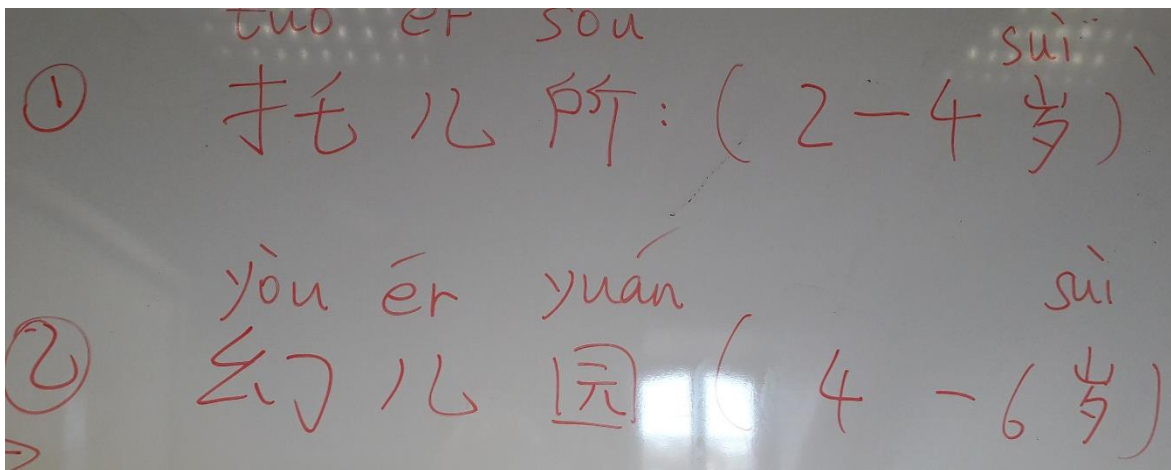 tuo er sou suì
① 托儿所:(2-4岁)
yòu ér yuán suì
② 幻儿园(4-6岁)